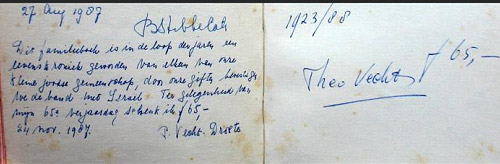 27 Aug 1987
Dit familieboek is in de loop der jaren een
levenskroniek geworden van elken van onze
kleine joodse gemeenschap, door onze giften bevestigen
we de band met Israel. Ter gelegenheid van
mijn 65e verjaardag schenk ik f 65,-
24 nov. 1987. P. Vecht-Droste
1923/88
Theo Vecht f 65,-